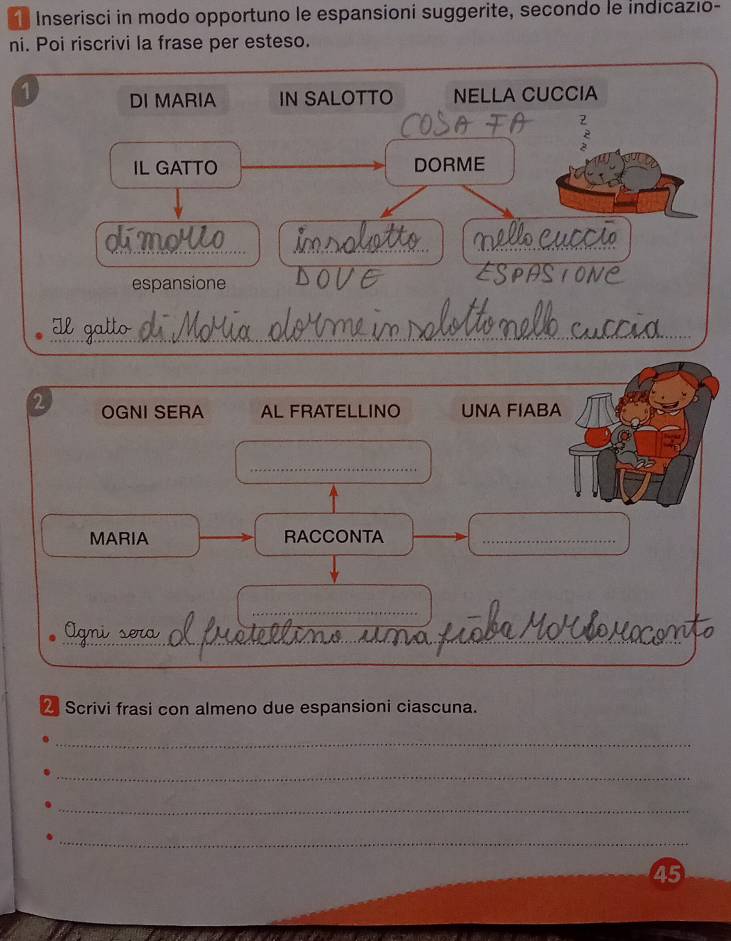 1 Inserisci in modo opportuno le espansioni suggerite, secondo le indicazio-
ni. Poi riscrivi la frase per esteso.
1
DI MARIA IN SALOTTO NELLA CUCCIA
COSA FA
z
z
z
IL GATTO DORME
in salotto nella cuccia
espansione DOVE ESPASIONE
Il gatto di Maria dorme in salotto nella cuccia
2
OGNI SERA AL FRATELLINO UNA FIABA
MARIA RACCONTA
Ogni sera al fratellino una fiaba
2 Scrivi frasi con almeno due espansioni ciascuna.
45